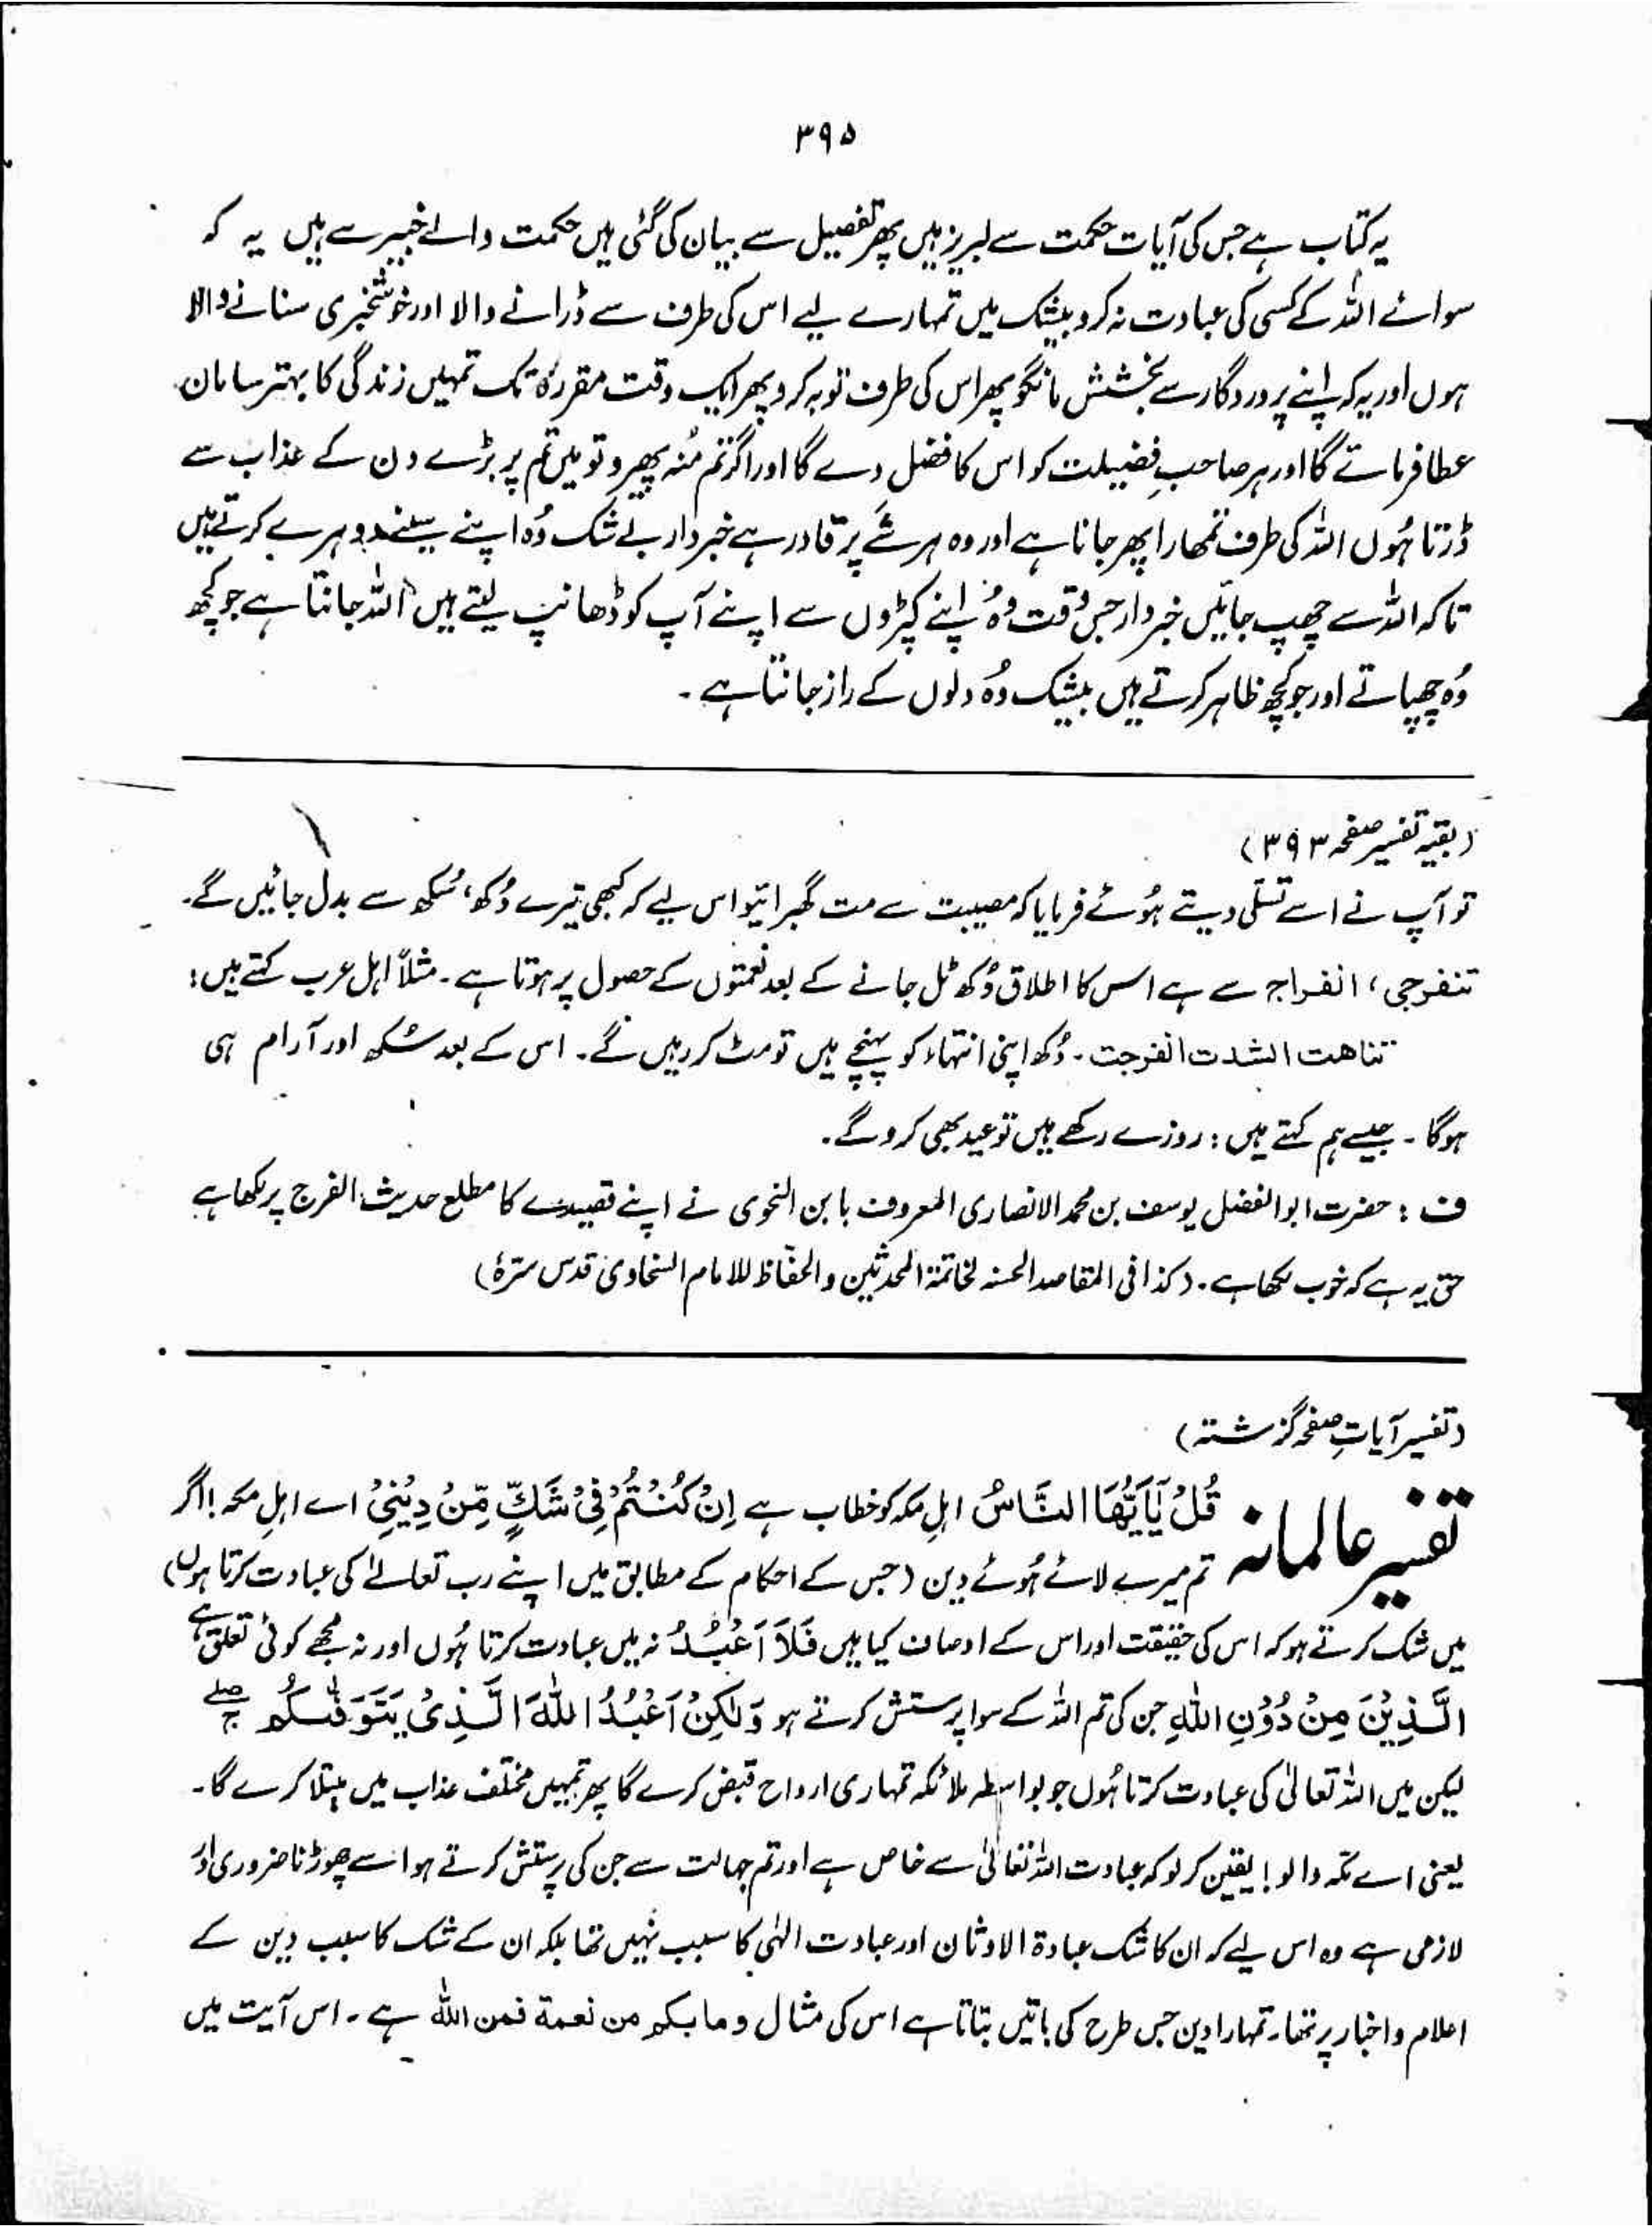 ۳۹۵
یہ کتاب ہے جس کی آیات حکمت سے لبریز ہیں پھر تفصیل سے بیان کی گئی ہیں حکمت والے خبیر سے ہیں یہ کہ
سوائے اللہ کے کسی کی عبادت نہ کرو بیشک میں تمہارے لیے اس کی طرف سے ڈرانے والا اور خوشخبری سنانے والا
ہوں اور یہ کہ اپنے پروردگار سے بخشش مانگو پھر اس کی طرف توبہ کرو پھر ایک وقت مقررہ تک تمہیں زندگی کا بہتر سامان
عطا فرمائے گا اور ہر صاحبِ فضیلت کو اس کا فضل دے گا اور اگر تم مُنہ پھیرو تو میں تم پر بڑے دن کے عذاب سے
ڈرتا ہُوں اللہ کی طرف تمھارا پھر جانا ہے اور وہ ہر شے پر قادر ہے خبردار بے شک وُہ اپنے سینے دوہرے کرتے ہیں
تاکہ اللہ سے چھپ جائیں خبردار جس وقت وُہ اپنے کپڑوں سے اپنے آپ کو ڈھانپ لیتے ہیں اللہ جانتا ہے جو کچھ
وُہ چھپاتے اور جو کچھ ظاہر کرتے ہیں بیشک وُہ دلوں کے راز جانتا ہے ۔
(بقیہ تفسیر صفحہ ۳۹۳)
تو آپ نے اسے تسلّی دیتے ہُوئے فرمایا کہ مصیبت سے مت گھبرائیو اس لیے کہ کبھی تیرے دُکھ، سُکھ سے بدل جائیں گے۔
تنفرجی، انفراج سے ہے اس کا اطلاق دُکھ ٹل جانے کے بعد نعمتوں کے حصول پر ہوتا ہے ۔ مثلاً اہل عرب کہتے ہیں :
تناھت الشدت انفرجت ۔ دُکھ اپنی انتہاء کو پہنچے ہیں تو مٹ کر رہیں گے۔ اس کے بعد سُکھ اور آرام ہی
ہوگا ۔ جیسے ہم کہتے ہیں : روزے رکھے ہیں تو عید بھی کرو گے ۔
ف : حضرت ابوالفضل یوسف بن محمد الانصاری المعروف بابن النحوی نے اپنے قصیدے کا مطلع حدیث الفرج پر لکھا ہے
حق یہ ہے کہ خوب لکھا ہے ۔ (کذا فی المقاصد الحسنہ لخاتمۃ المحدثین والحفّاظ للامام السخاوی قدس سرّہٗ)
(تفسیر آیاتِ صفحہ گزشتہ)
تفسیر عالمانہ قُلْ یٰٓاَیُّھَا النَّاسُ اہلِ مکہ کو خطاب ہے اِنْ کُنْتُمْ فِیْ شَكٍّ مِّنْ دِیْنِیْ اے اہلِ مکہ! اگر
تم میرے لائے ہُوئے دین (جس کے احکام کے مطابق میں اپنے رب تعالیٰ کی عبادت کرتا ہوں)
میں شک کرتے ہو کہ اس کی حقیقت اور اس کے اوصاف کیا ہیں فَلَآ اَعْبُدُ نہ میں عبادت کرتا ہُوں اور نہ مجھے کوئی تعلق ہے
الَّذِیْنَ مِنْ دُوْنِ اللّٰہِ جن کی تم اللہ کے سوا پرستش کرتے ہو وَلٰکِنْ اَعْبُدُ اللّٰہَ الَّذِیْ یَتَوَفّٰىکُمْ صلے ج
لیکن میں اللہ تعالیٰ کی عبادت کرتا ہُوں جو بواسطہ ملائکہ تمہاری ارواح قبض کرے گا پھر تمہیں مختلف عذاب میں مبتلا کرے گا۔
یعنی اے مکہ والو! یقین کر لو کہ عبادت اللہ تعالیٰ سے خاص ہے اور تم جہالت سے جن کی پرستش کرتے ہو اسے چھوڑنا ضروری اور
لازمی ہے وہ اس لیے کہ ان کا شک عبادۃ الاوثان اور عبادت الٰہی کا سبب نہیں تھا بلکہ ان کے شک کا سبب دین کے
اعلام و اخبار پر تھا۔ تمہارا دین جس طرح کی باتیں بتاتا ہے اس کی مثال وما بکم من نعمة فمن اللہ ہے ۔ اس آیت میں